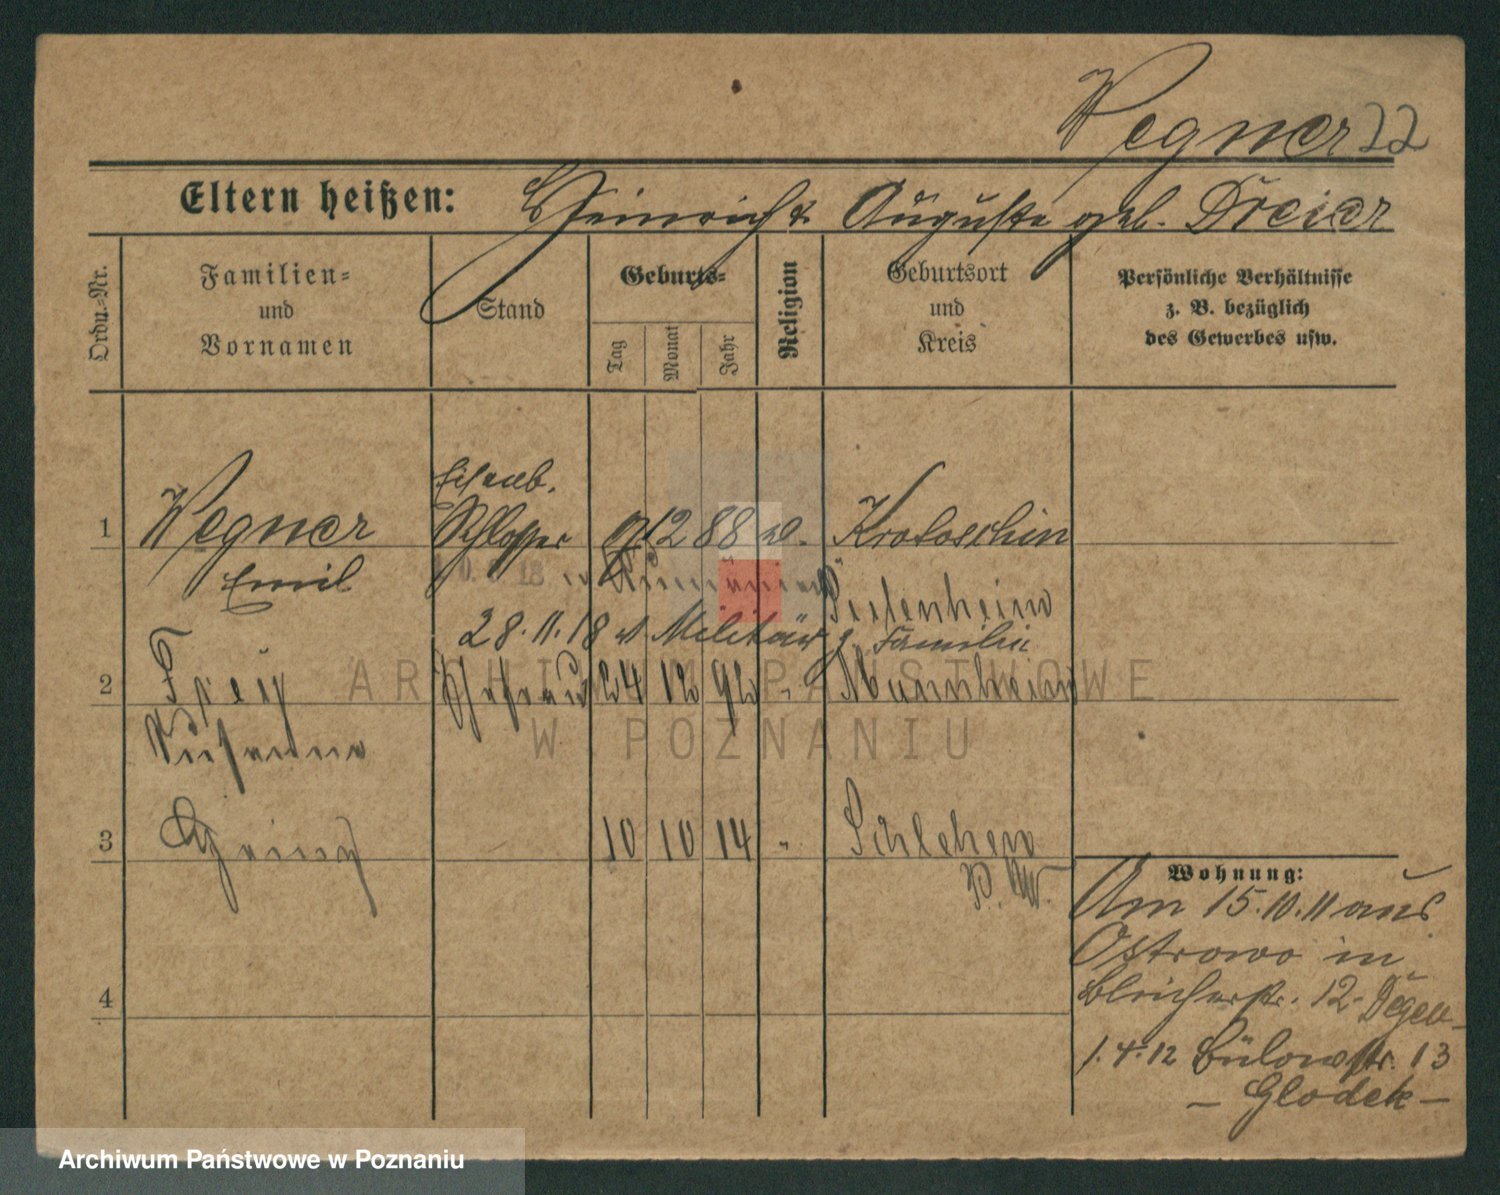 Wegner 22
Eltern heißen: Heinrich & Auguste geb. Dreier
Ordn.-Nr.
Familien-
und
Vornamen
Stand
Geburts-
Tag
Monat
Jahr
Religion
Geburtsort
und
Kreis
Persönliche Verhältnisse
z. B. bezüglich
des Gewerbes usw.
Eisenb.
1 Wegner Schlosser 9 12 88 Krotoschin
Emil 18 Rumänien
28.11.18 v Militär z. Familie
2 Frey Ehefrau 24 12 92 " Mannheim
Susanna
3 Georg 10 10 14 " Schlehen
P. W.
4
Wohnung:
Am 15.10.11 aus
Ostrowo in
Bleicherstr. 12 - Degen-
1.4.12 Bülowstr. 13
- Glodek -
ARCHIWUM PAŃSTWOWE
W POZNANIU
Archiwum Państwowe w Poznaniu